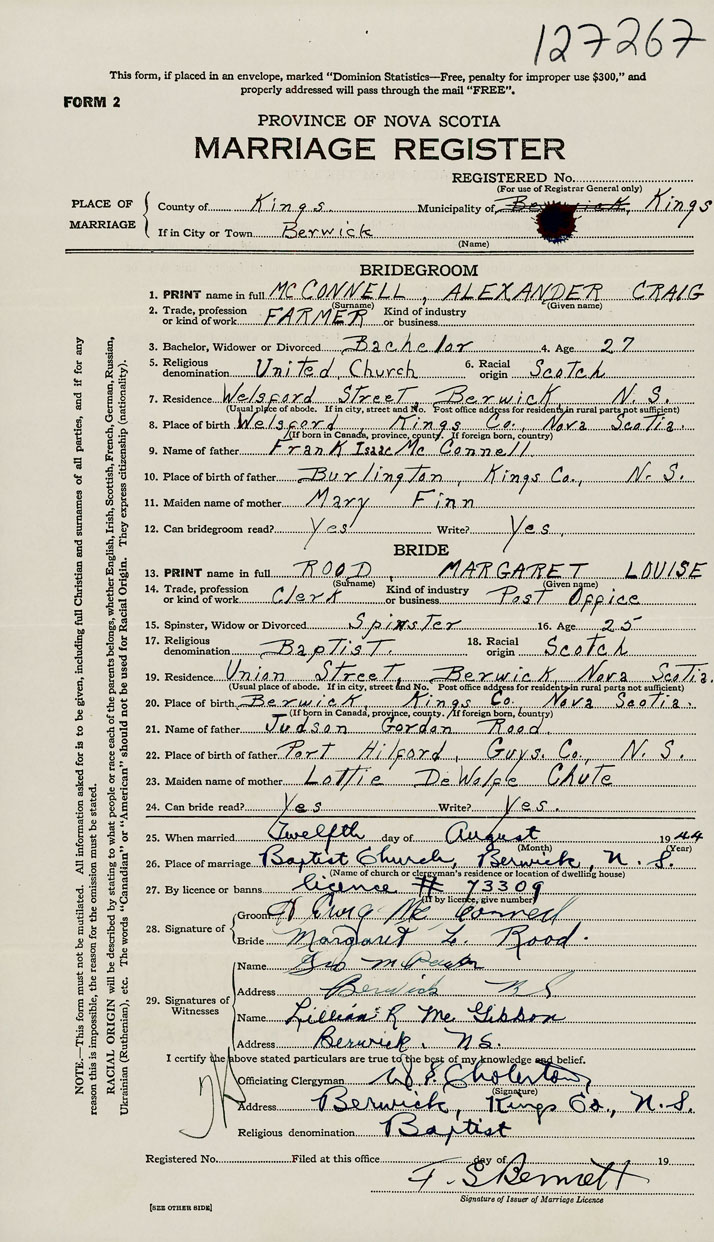 127267
This form, if placed in an envelope, marked "Dominion Statistics—Free, penalty for improper use $300," and
properly addressed will pass through the mail "FREE".
FORM 2
PROVINCE OF NOVA SCOTIA
MARRIAGE REGISTER
REGISTERED No.
(For use of Registrar General only)
PLACE OF MARRIAGE
County of Kings Municipality of Berwick, Kings
If in City or Town Berwick
(Name)
BRIDEGROOM
1. PRINT name in full McCONNELL, ALEXANDER CRAIG
(Surname) (Given name)
2. Trade, profession or kind of work FARMER Kind of industry or business
3. Bachelor, Widower or Divorced Bachelor 4. Age 27
5. Religious denomination United Church 6. Racial origin Scotch
7. Residence Welsford Street, Berwick N.S.
(Usual place of abode. If in city, street and No. Post office address for residents in rural parts not sufficient)
8. Place of birth Welsford, Kings Co., Nova Scotia.
(If born in Canada, province, county. If foreign born, country)
9. Name of father Frank Isaac McConnell
10. Place of birth of father Burlington, Kings Co., N.S.
11. Maiden name of mother Mary Finn
12. Can bridegroom read? Yes Write? Yes,
BRIDE
13. PRINT name in full ROOD, MARGARET LOUISE
(Surname) (Given name)
14. Trade, profession or kind of work Clerk Kind of industry or business Post Office
15. Spinster, Widow or Divorced Spinster 16. Age 25
17. Religious denomination Baptist. 18. Racial origin Scotch
19. Residence Union Street, Berwick, Nova Scotia.
(Usual place of abode. If in city, street and No. Post office address for residents in rural parts not sufficient)
20. Place of birth Berwick, Kings Co. Nova Scotia.
(If born in Canada, province, county. If foreign born, country)
21. Name of father Judson Gordon Rood
22. Place of birth of father Port Hilford, Guys. Co., N.S.
23. Maiden name of mother Lottie DeWolfe Chute
24. Can bride read? Yes Write? Yes.
25. When married Twelfth day of August 1944
(Month) (Year)
26. Place of marriage Baptist Church, Berwick, N.S.
(Name of church or clergyman's residence or location of dwelling house)
27. By licence or banns licence # 73309
(If by licence, give number)
28. Signature of
Groom A Craig McConnell
Bride Margaret L. Rood.
29. Signatures of Witnesses
Name Geo
Address Berwick NS
Name Lillian R McGibbon
Address Berwick, NS.
I certify the above stated particulars are true to the best of my knowledge and belief.
Officiating Clergyman W.E. Cholerton,
(Signature)
Address Berwick, Kings Co., N.S.
Religious denomination Baptist
Registered No. Filed at this office day of 19
F. S. Bennett
Signature of Issuer of Marriage Licence
[SEE OTHER SIDE]
NOTE.—This form must not be mutilated. All information asked for is to be given, including full Christian and surnames of all parties, and if for any
reason this is impossible, the reason for the omission must be stated.
RACIAL ORIGIN will be described by stating to what people or race each of the parents belongs, whether English, Irish, Scottish, French, German, Russian,
Ukrainian (Ruthenian), etc. The words "Canadian" or "American" should not be used for Racial Origin. They express citizenship (nationality).